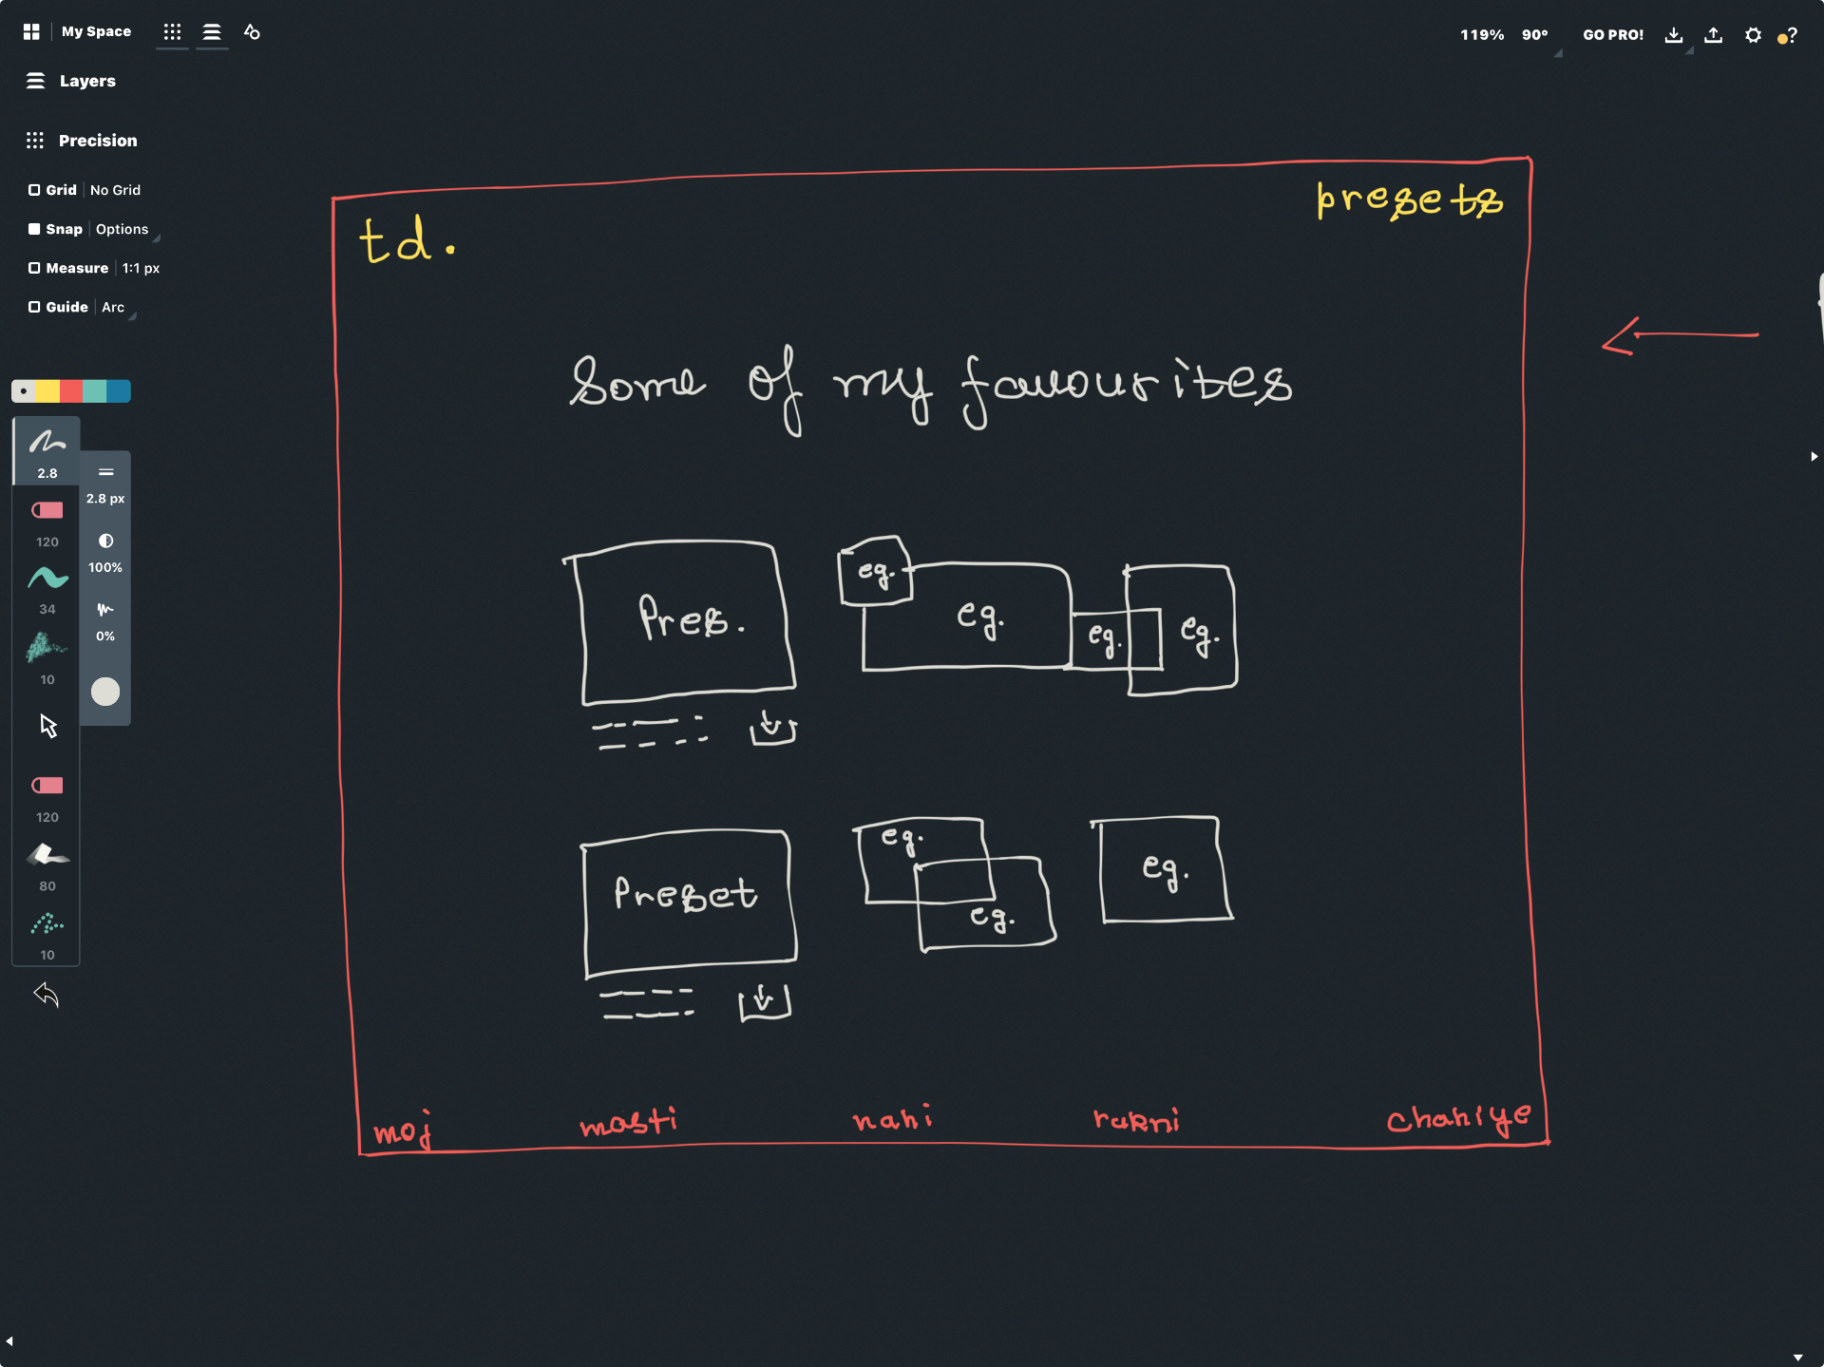 My Space
119% 90° GO PRO! ?
Layers
Precision
Grid No Grid
Snap Options
Measure 1:1 px
Guide Arc
2.8
120
34
10
120
80
10
2.8 px
100%
0%
td. presets
Some of my favourites
Pres. eg. eg. eg. eg.
Preset eg. eg. eg.
moj masti nahi rukni chahiye